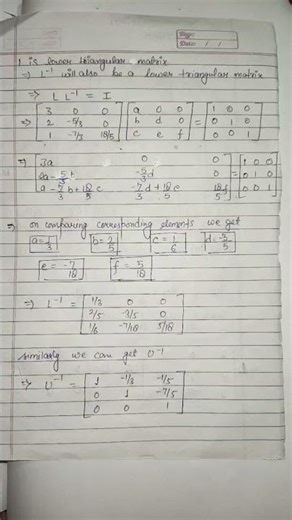 Page:
Date: / /
L is lower triangular matrix
⇒ L⁻¹ will also be a lower triangular matrix
⇒ L L⁻¹ = I
⇒ [3 0 0; 2 -5/3 0; 1 -7/3 18/5] [a 0 0; b d 0; c e f] = [1 0 0; 0 1 0; 0 0 1]
⇒ [3a 0 0; 2a - 5/3 b -5/3 d 0; a - 7/3 b + 18/5 c -7/3 d + 18/5 e 18/5 f] = [1 0 0; 0 1 0; 0 0 1]
⇒ on comparing corresponding elements we get
a = 1/3 b = 2/5 c = 1/6 d = -3/5
e = -7/18 f = 5/18
⇒ L⁻¹ = [1/3 0 0; 2/5 -3/5 0; 1/6 -7/18 5/18]
similarly we can get U⁻¹
⇒ U⁻¹ = [1 -1/3 -1/5; 0 1 -7/5; 0 0 1]